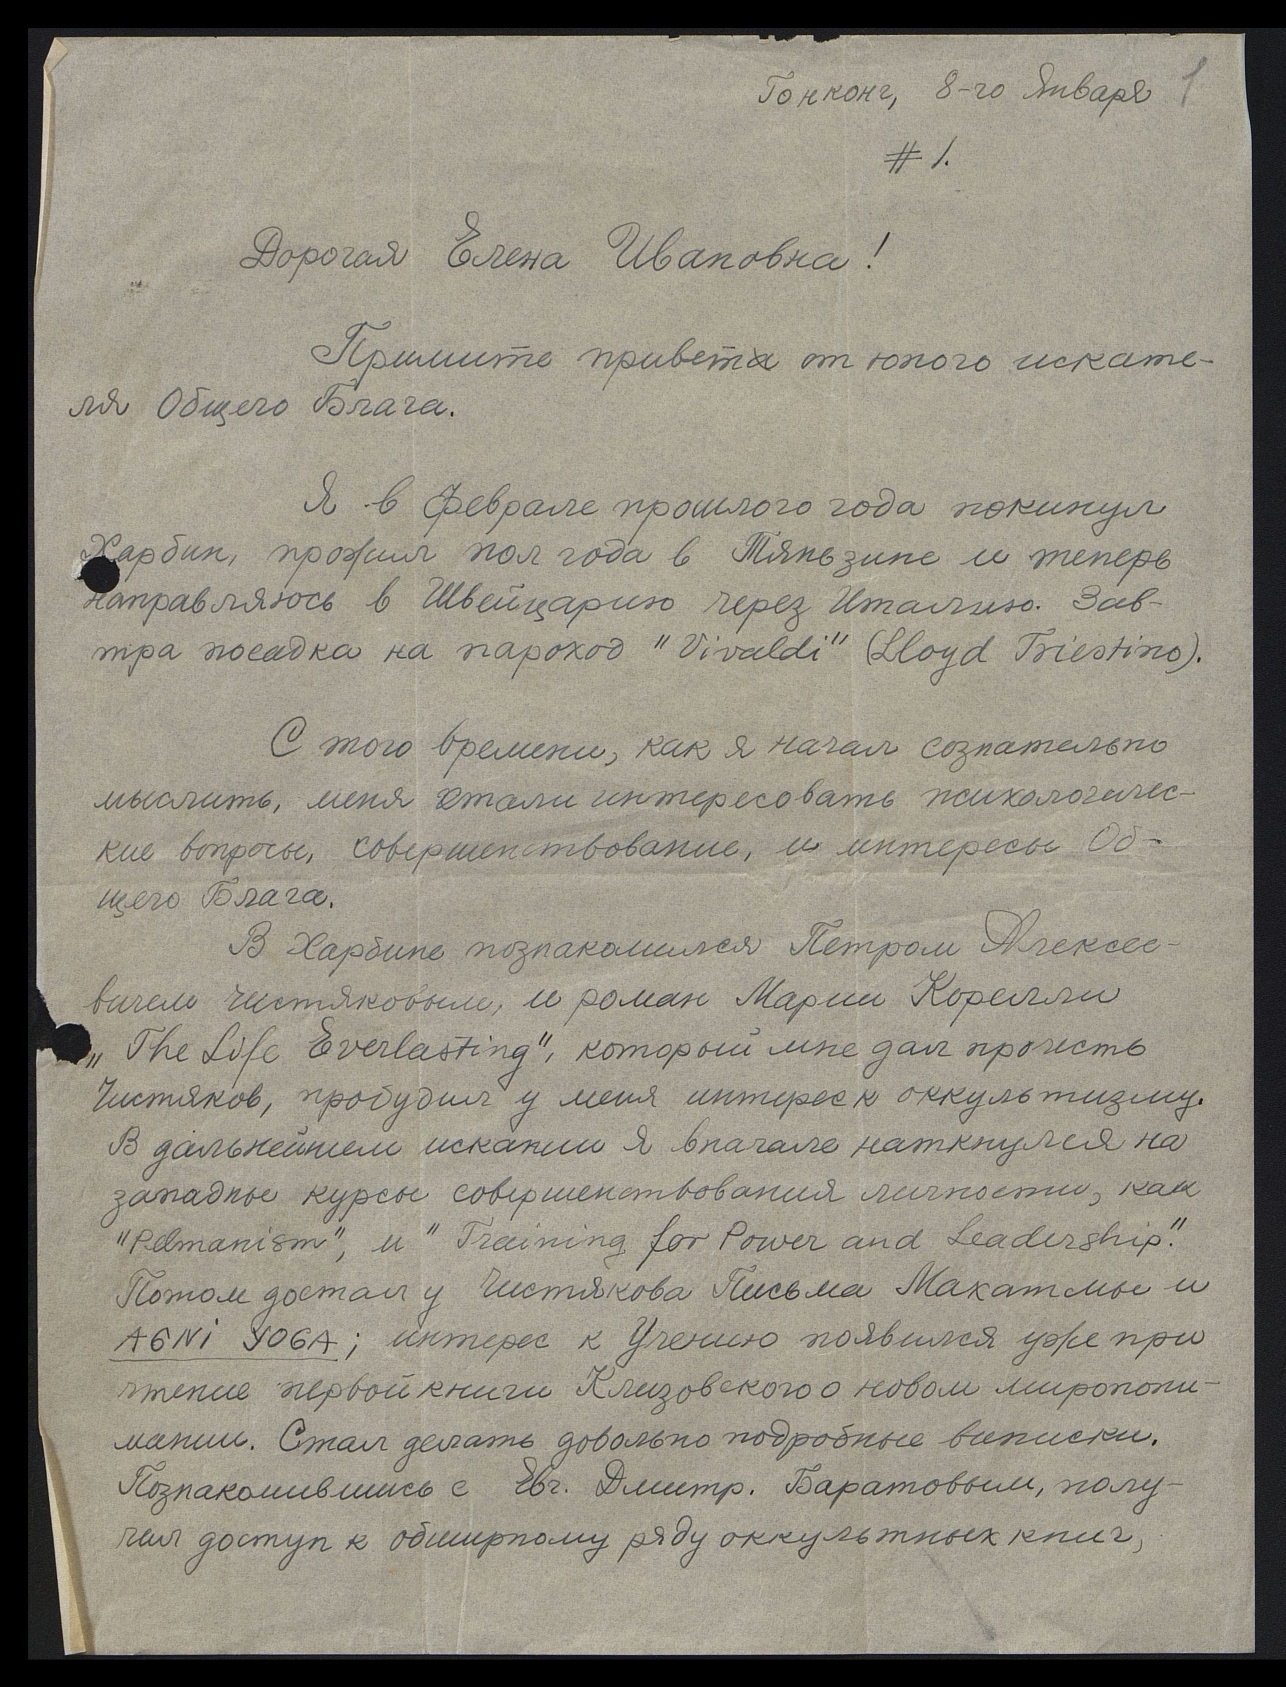 Гонконг, 8-го Января 1
# 1.
Дорогая Елена Ивановна!
Примите привета от юного искате-
ля Общего Блага.
Я в феврале прошлого года покинул
Харбин, прожил пол года в Тяньзине и теперь
направляюсь в Швейцарию через Италию. Зав-
тра посадка на пароход "Vivaldi" (Lloyd Triestino).
С того времени, как я начал сознательно
мыслить, меня стали интересовать психологичес-
кие вопросы, совершенствование, и интересы Об-
щего Блага.
В Харбине познакомился Петром Алексее-
вичем Чистяковым, и роман Марии Корелли
„The Life Everlasting", который мне дал прочесть
Чистяков, пробудил у меня интерес к оккультизму.
В дальнейшем искании я вначале наткнулся на
западные курсы совершенствования личности, как
"Pelmanism", и "Training for Power and Leadership".
Потом достал у Чистякова Письма Махатмы и
AGNI YOGA; интерес к Учению появился уже при
чтение первой книги Клизовского о новом миропони-
мании. Стал делать довольно подробные виписки.
Познакомившись с Евг. Дмитр. Баратовым, полу-
чил доступ к обширному ряду оккультных книг,